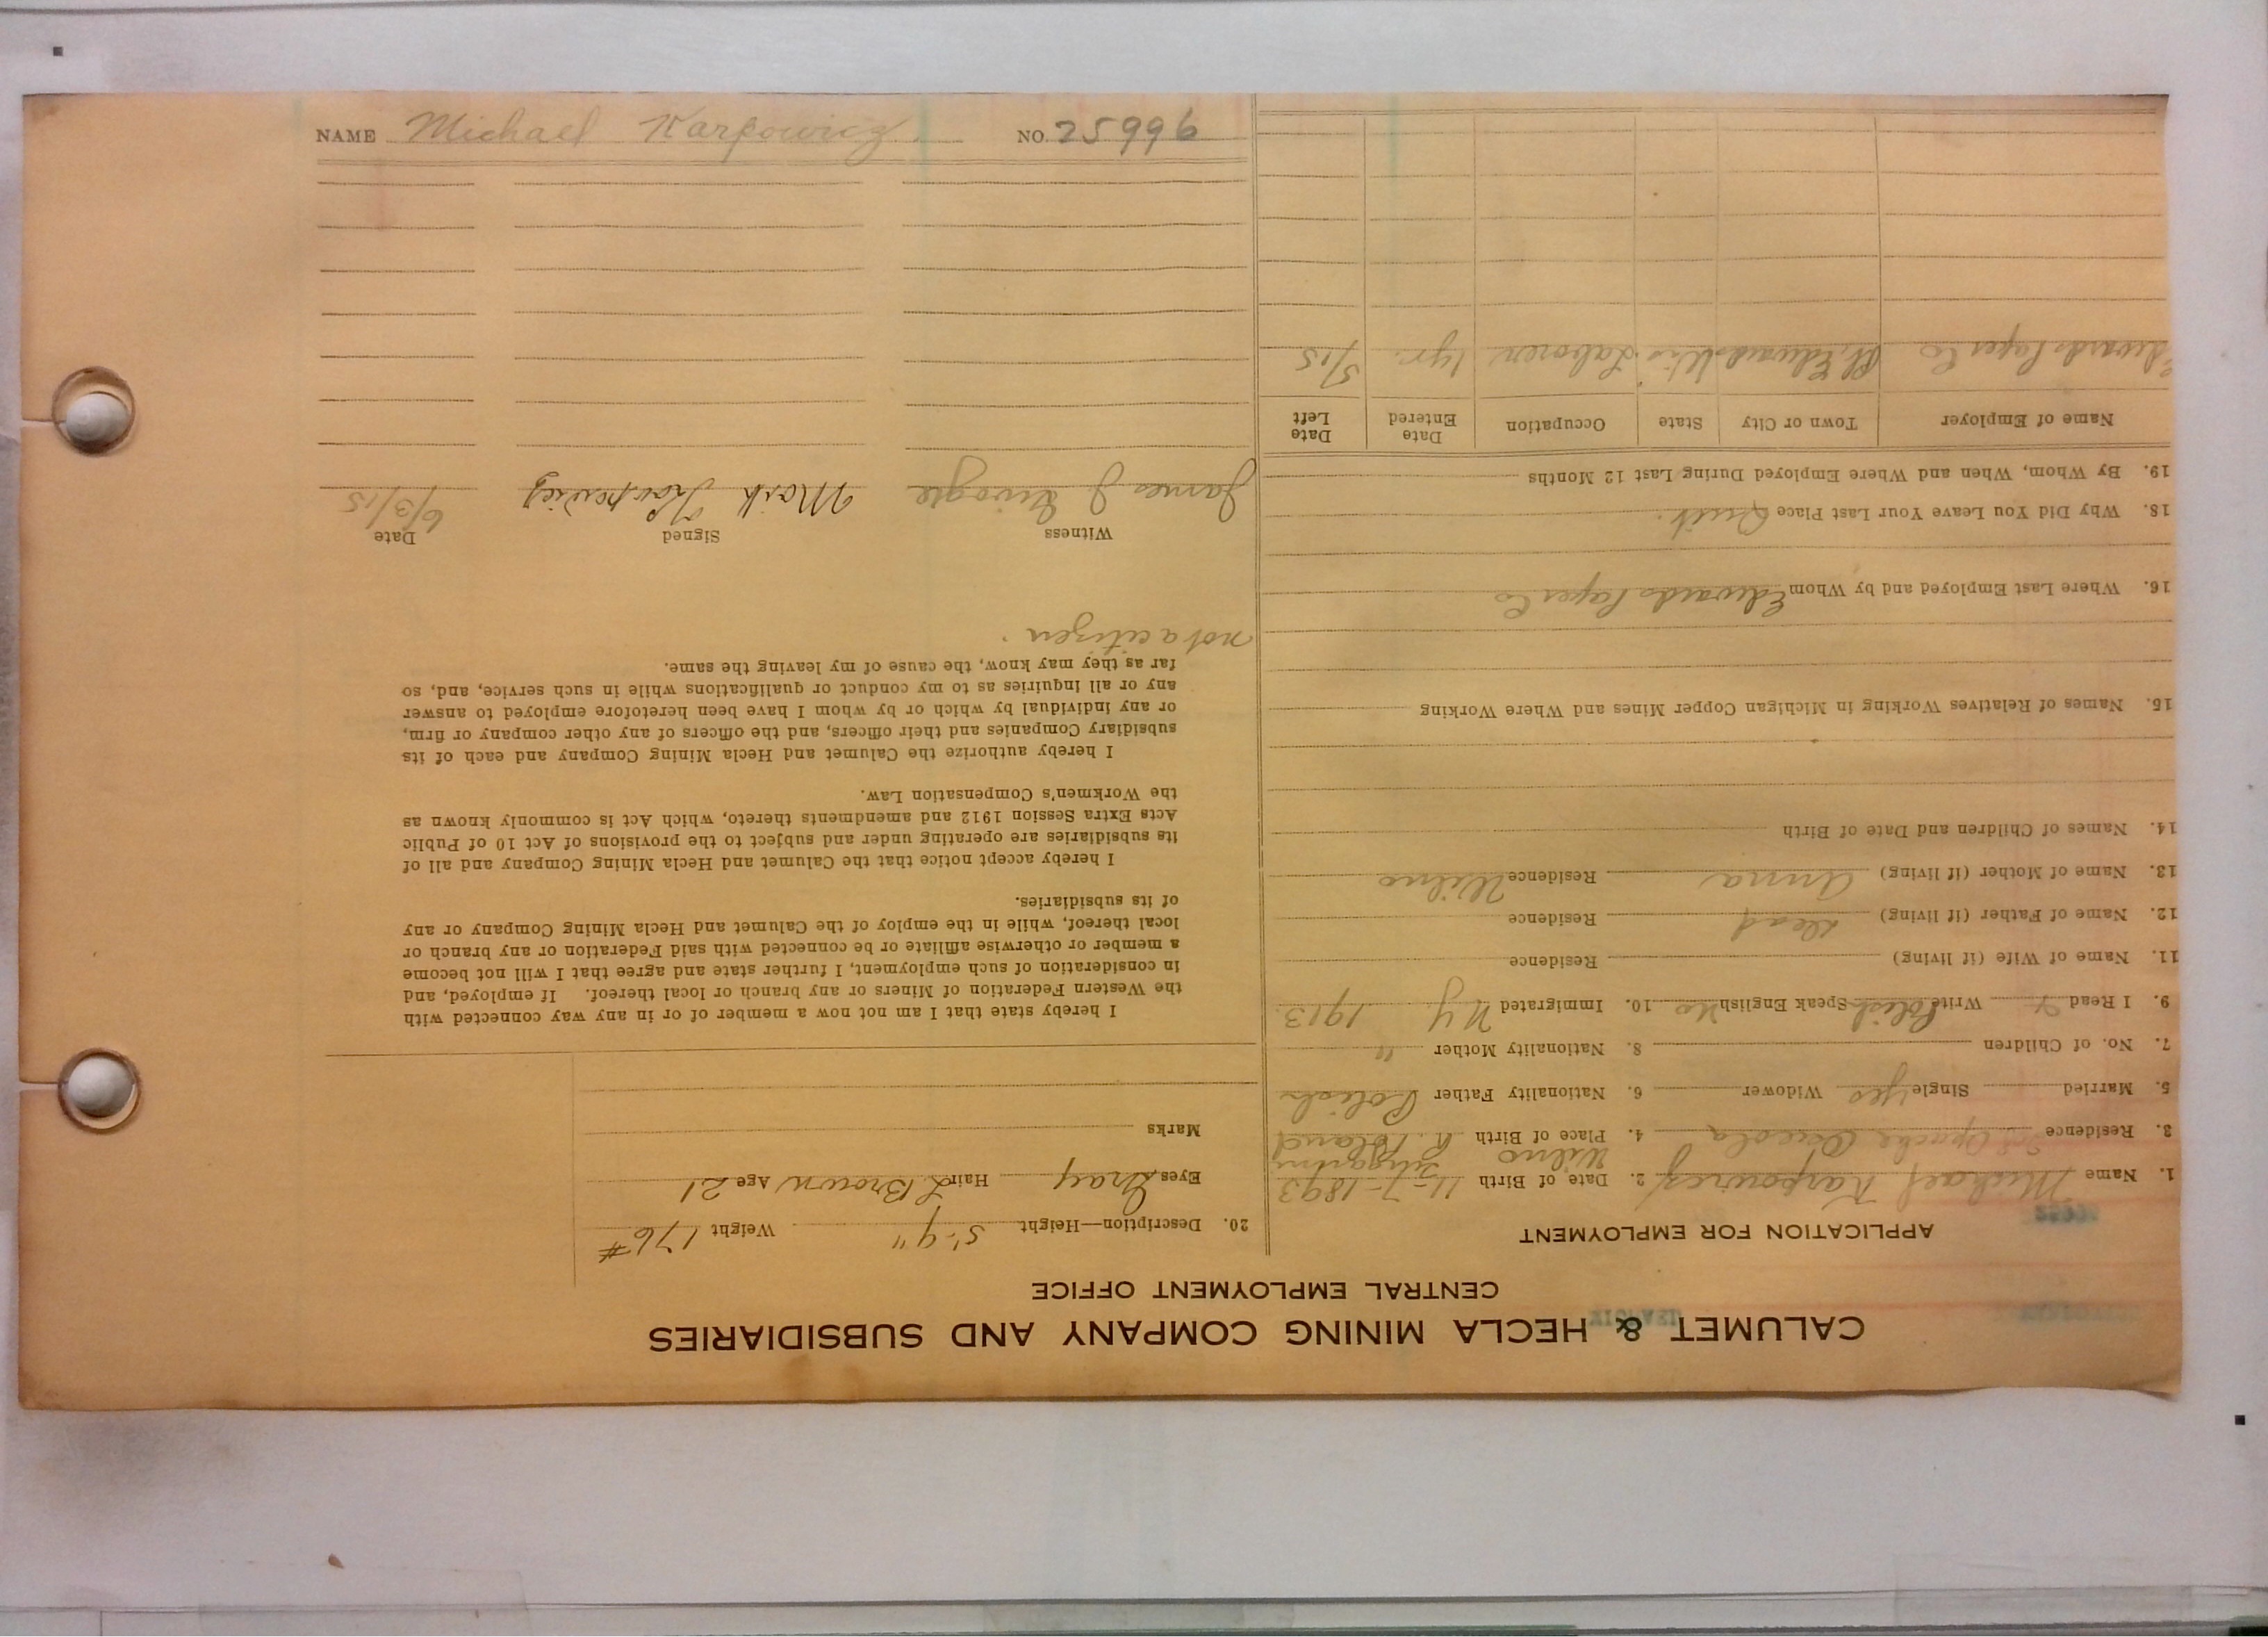 CALUMET & HECLA MINING COMPANY AND SUBSIDIARIES
CENTRAL EMPLOYMENT OFFICE
APPLICATION FOR EMPLOYMENT
1. Name Michael Karpowicz 2. Date of Birth 11-7-1893
3. Residence Osceola 4. Place of Birth Wilno R. Poland
5. Married Single yes Widower 6. Nationality Father Polish
7. No. of Children 8. Nationality Mother "
9. I Read Write Polish Speak English No 10. Immigrated N Y 1913
11. Name of Wife (if living) Residence
12. Name of Father (if living) dead Residence
13. Name of Mother (if living) Anna Residence Wilno
14. Names of Children and Date of Birth
15. Names of Relatives Working in Michigan Copper Mines and Where Working
16. Where Last Employed and by Whom Edwards Paper Co
18. Why Did You Leave Your Last Place Quit.
19. By Whom, When and Where Employed During Last 12 Months
Name of Employer Town or City State Occupation Date Entered Date Left
Edwards Paper Co Pt. Edwards Wis. Laborer 1 yr. 5/15
20. Description—Height 5'-9" Weight 176#
Eyes Gray Hair L Brown Age 21
Marks
I hereby state that I am not now a member of or in any way connected with
the Western Federation of Miners or any branch or local thereof. If employed, and
in consideration of such employment, I further state and agree that I will not become
a member or otherwise affiliate or be connected with said Federation or any branch or
local thereof, while in the employ of the Calumet and Hecla Mining Company or any
of its subsidiaries.
I hereby accept notice that the Calumet and Hecla Mining Company and all of
its subsidiaries are operating under and subject to the provisions of Act 10 of Public
Acts Extra Session 1912 and amendments thereto, which Act is commonly known as
the Workmen's Compensation Law.
I hereby authorize the Calumet and Hecla Mining Company and each of its
subsidiary Companies and their officers, and the officers of any other company or firm,
or any individual by which or by whom I have been heretofore employed to answer
any or all inquiries as to my conduct or qualifications while in such service, and, so
far as they may know, the cause of my leaving the same.
not a citizen.
Witness Signed Date
James J 6/3/15
NAME Michael Karpowicz NO. 25996